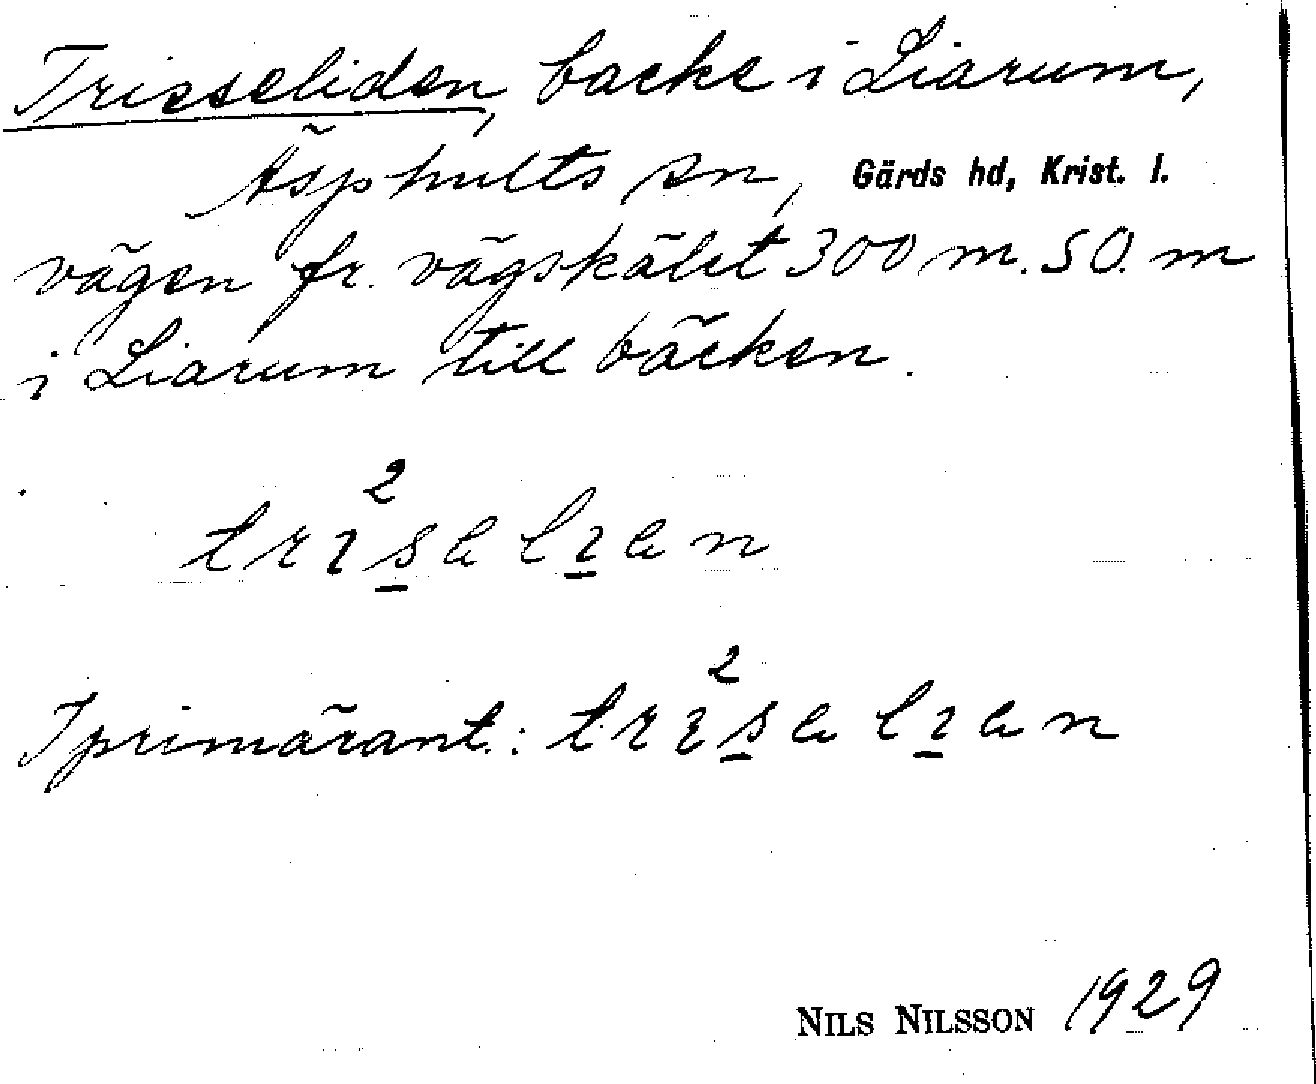 Trisseliden, backe i Liarum,
Äsphults sn, Gärds hd, Krist. l.
vägen fr. vägskälet 300 m. SO. m
i Liarum till bäcken.
trɪ²s̲e lɪ̲en
I primärant.: trɪ²s̲e lɪ̲en
NILS NILSSON 1929